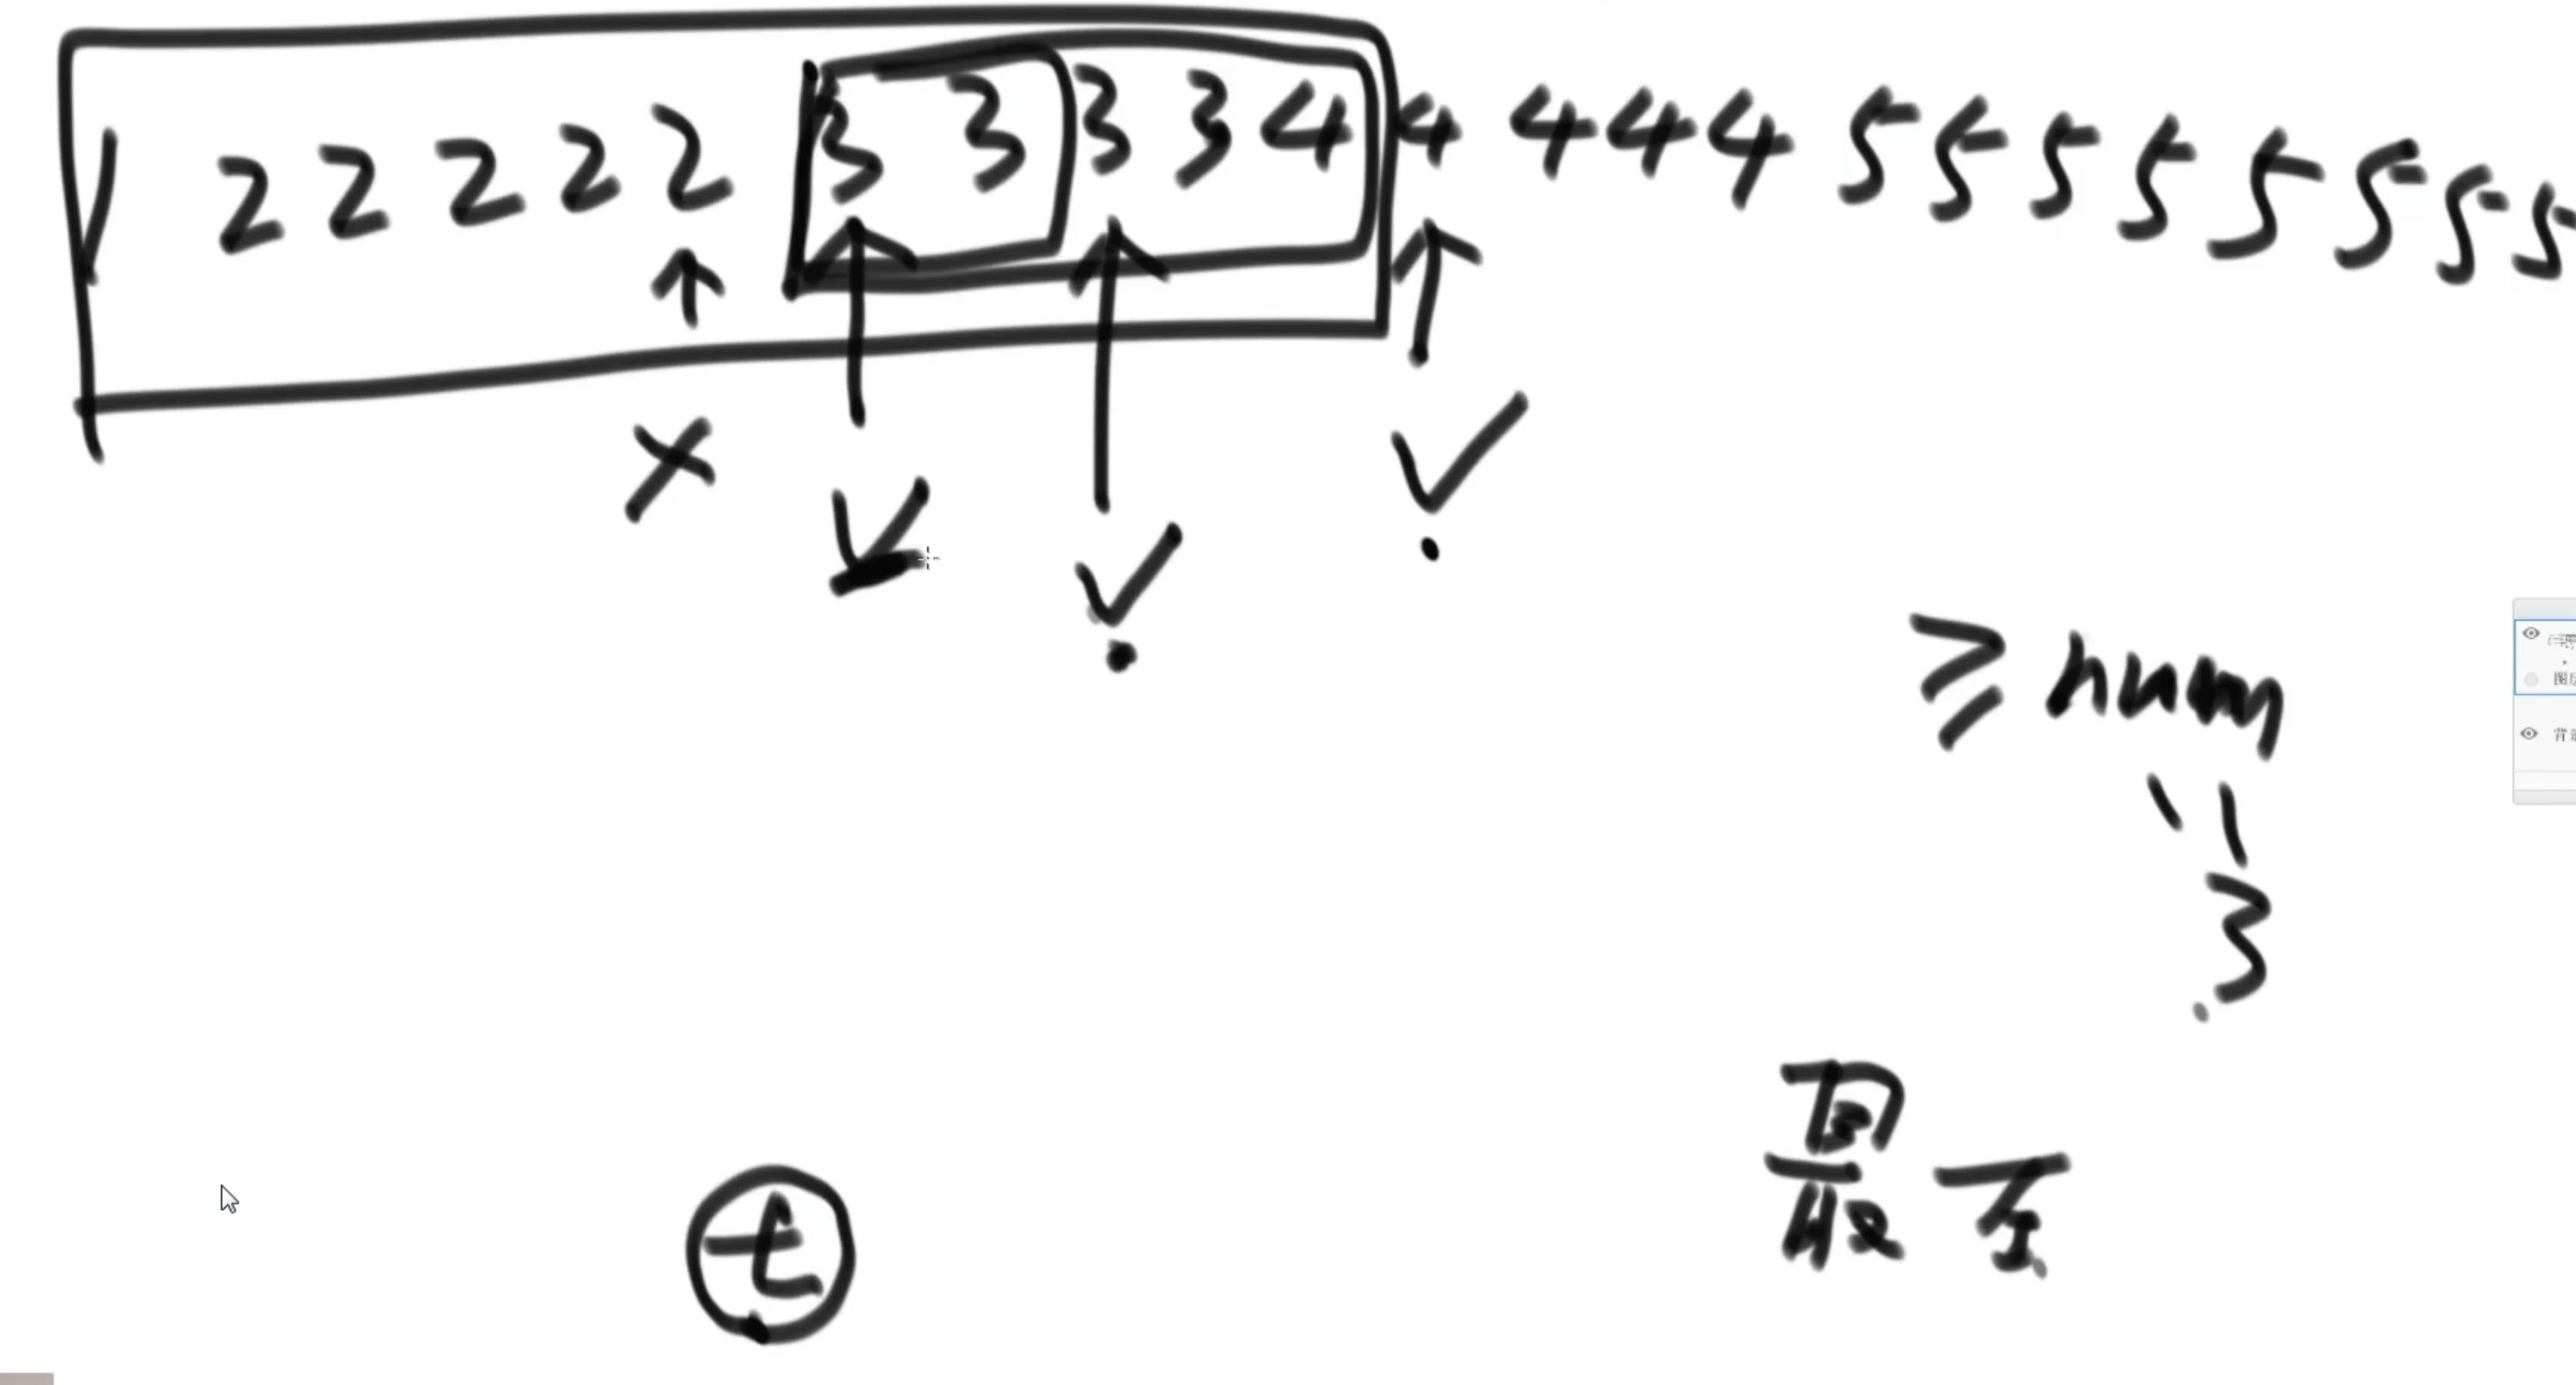 1 2 2 2 2 2 3 3 3 3 4 4 4 4 4 5 5 5 5 5 5 5 5
≥ num
图
背
3
最左
t